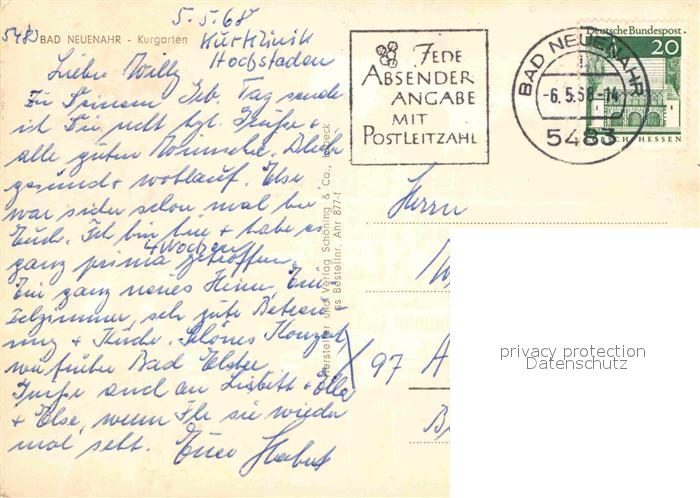 5.5.68
5483 BAD NEUENAHR - Kurgarten
Kurklinik
Hochstaden
Lieber Willy
Zu Deinem Geb. Tag sende
ich Dir recht hzl. Grüße +
alle guten Wünsche. Bleib
gesund + wohlauf. Else
war sicher schon mal bei
Euch. Ich bin hier + habe es
4 Wochen
ganz prima getroffen.
Ein ganz neues Heim, Ein-
zelzimmer, sehr gute Betreu-
ung + Küche. Schönes Konzert,
wie früher Bad Elster
Grüße auch an Lisbett + Ella
+ Else, wenn Ihr sie wieder
mal seht. Euer
Hersteller und Verlag Schöning & Co., Lübeck
es Bestellnr. Ahr 877-1
JEDE
ABSENDER
ANGABE
MIT
POSTLEITZAHL
BAD NEUENAHR
-6.5.68-14
5483
Deutsche Bundespost
20
LORSCH/HESSEN
Herrn
97 A
privacy protection
Datenschutz